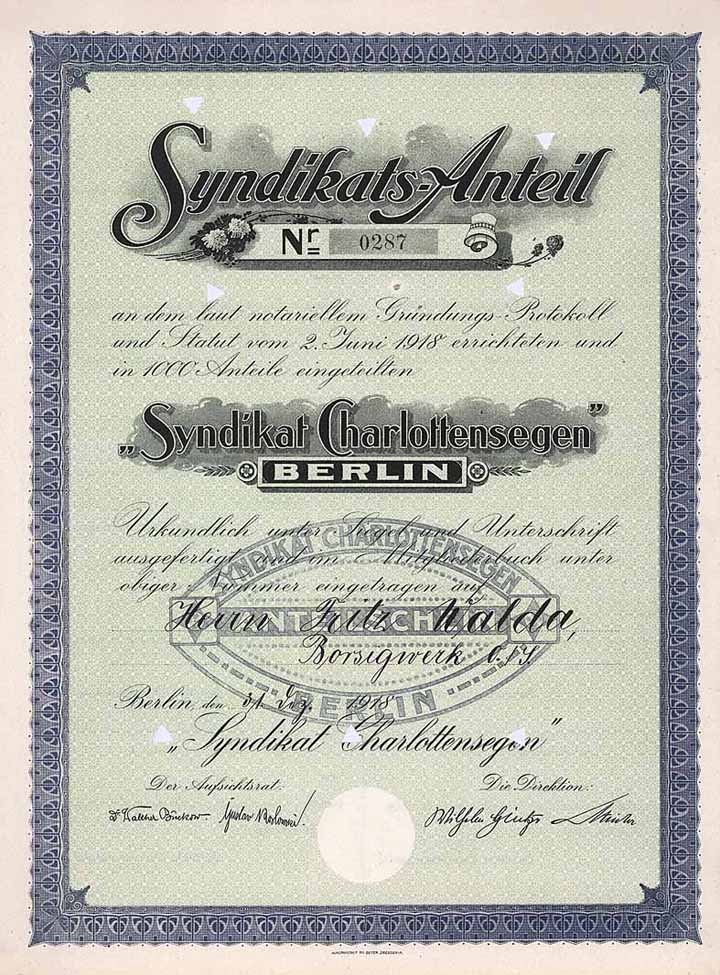 Syndikats-Anteil
Nr 0287
an dem laut notariellem Gründungs-Protokoll
und Statut vom 2. Juni 1918 errichteten und
in 1000 Anteile eingeteilten
„Syndikat Charlottensegen”
BERLIN
Urkundlich unter Siegel und Unterschrift
ausgefertigt und im Mitgliederbuch unter
obiger Nummer eingetragen auf
SYNDIKAT CHARLOTTENSEGEN
ANTEILSCHEIN
BERLIN
Herrn Fritz Walda,
Borsigwerk O./S.
Berlin, den 31 Dez. 1918
„Syndikat Charlottensegen”
Der Aufsichtsrat: Die Direktion:
Dr Walther Gustav Wilhelm